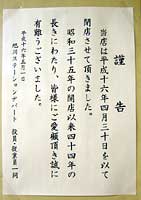 謹告
当店は平成十六年四月三十日を以て
閉店させて頂きました。
昭和三十五年の開店以来四十四年の
長きにわたり、皆様にご愛顧頂き誠に
有難うございました。
平成十六年五月一日
旭川ステーションデパート
役員・従業員一同